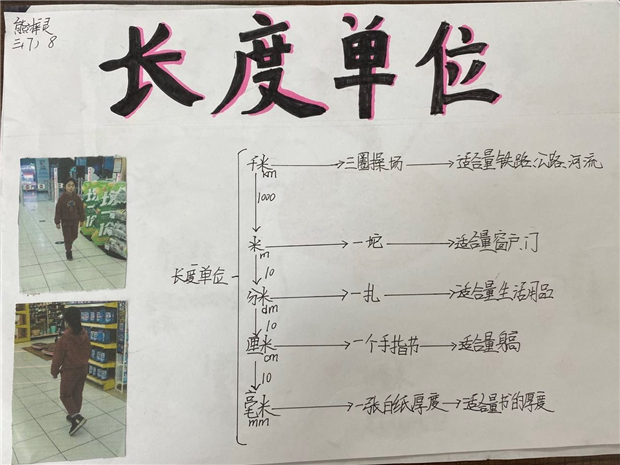 三(7) 8
长度单位
千米 km 三圈操场 适合量铁路.公路.河流
1000
米 m 一坨 适合量窗户.门
10
长度单位
分米 dm 一扎 适合量生活用品
10
厘米 cm 一个手指节 适合量身高
10
毫米 mm 一张白纸厚度 适合量书的厚度